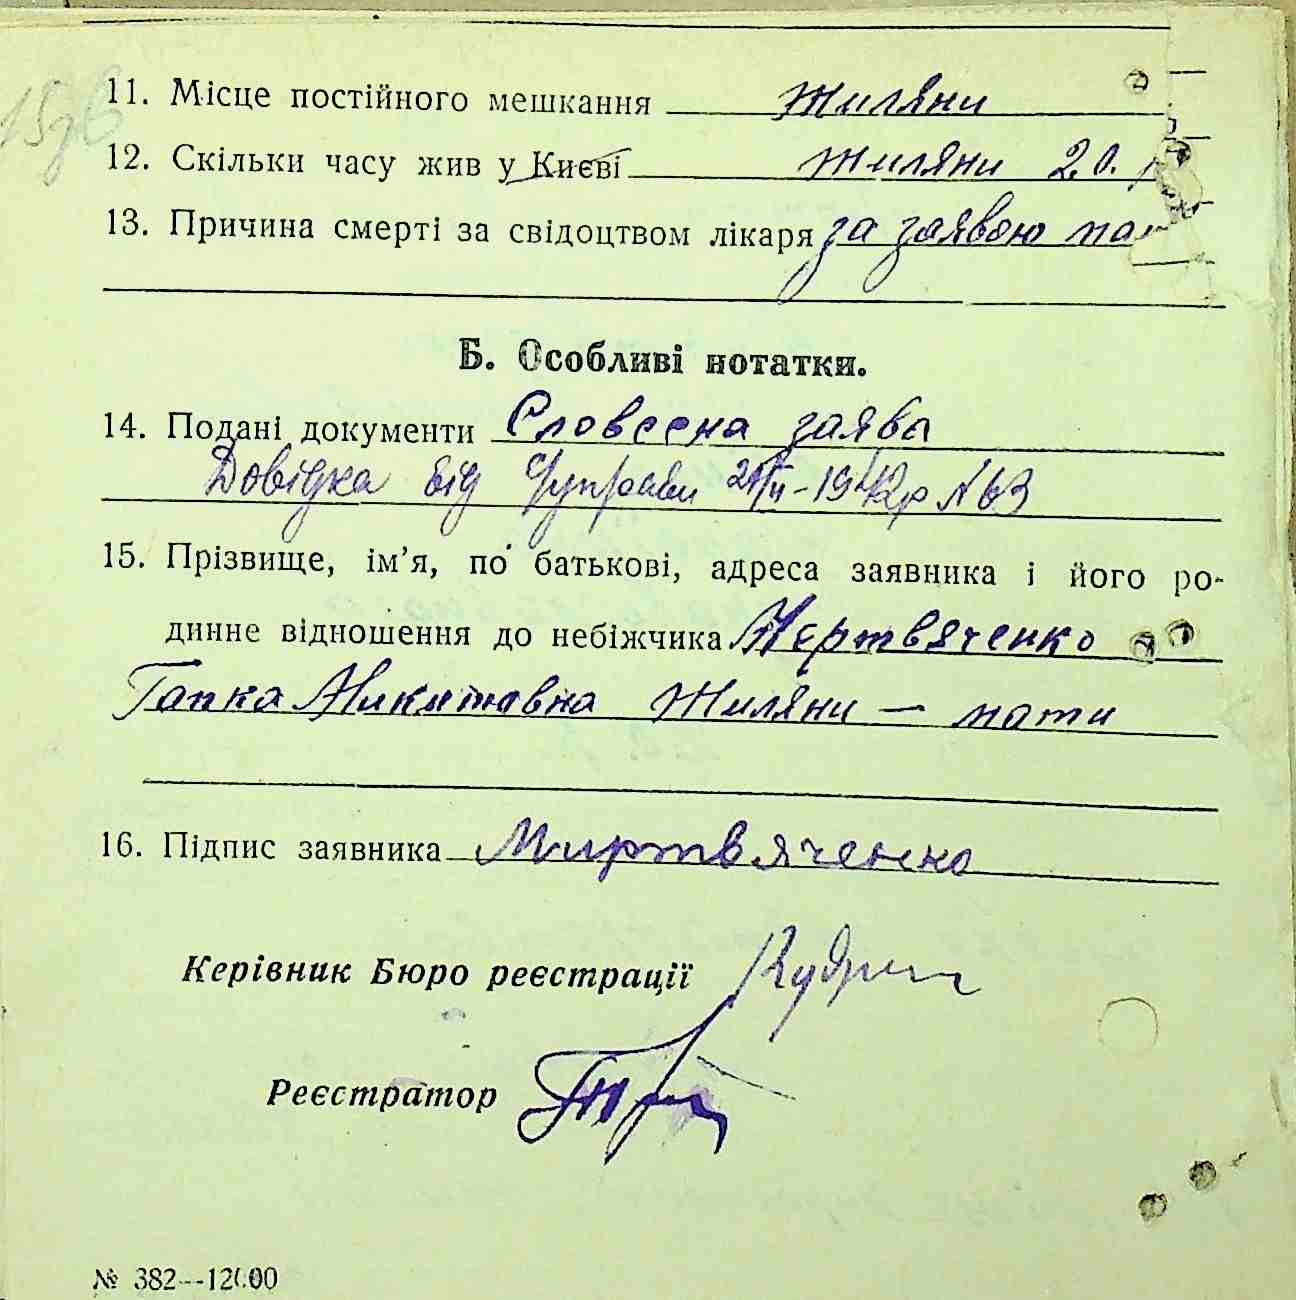 11. Місце постійного мешкання Жиляни
12. Скільки часу жив у Києві Жиляни 20.
13. Причина смерті за свідоцтвом лікаря за заявою ма
Б. Особливі нотатки.
14. Подані документи Словесна заява
Довідка від 194 р N 63
15. Прізвище, ім’я, по батькові, адреса заявника і його ро-
динне відношення до небіжчика Мертвяченко
Гапка Микитовна Жиляни — мати
16. Підпис заявника Миртвяченко
Керівник Бюро реєстрації
Реєстратор
№ 382--12000